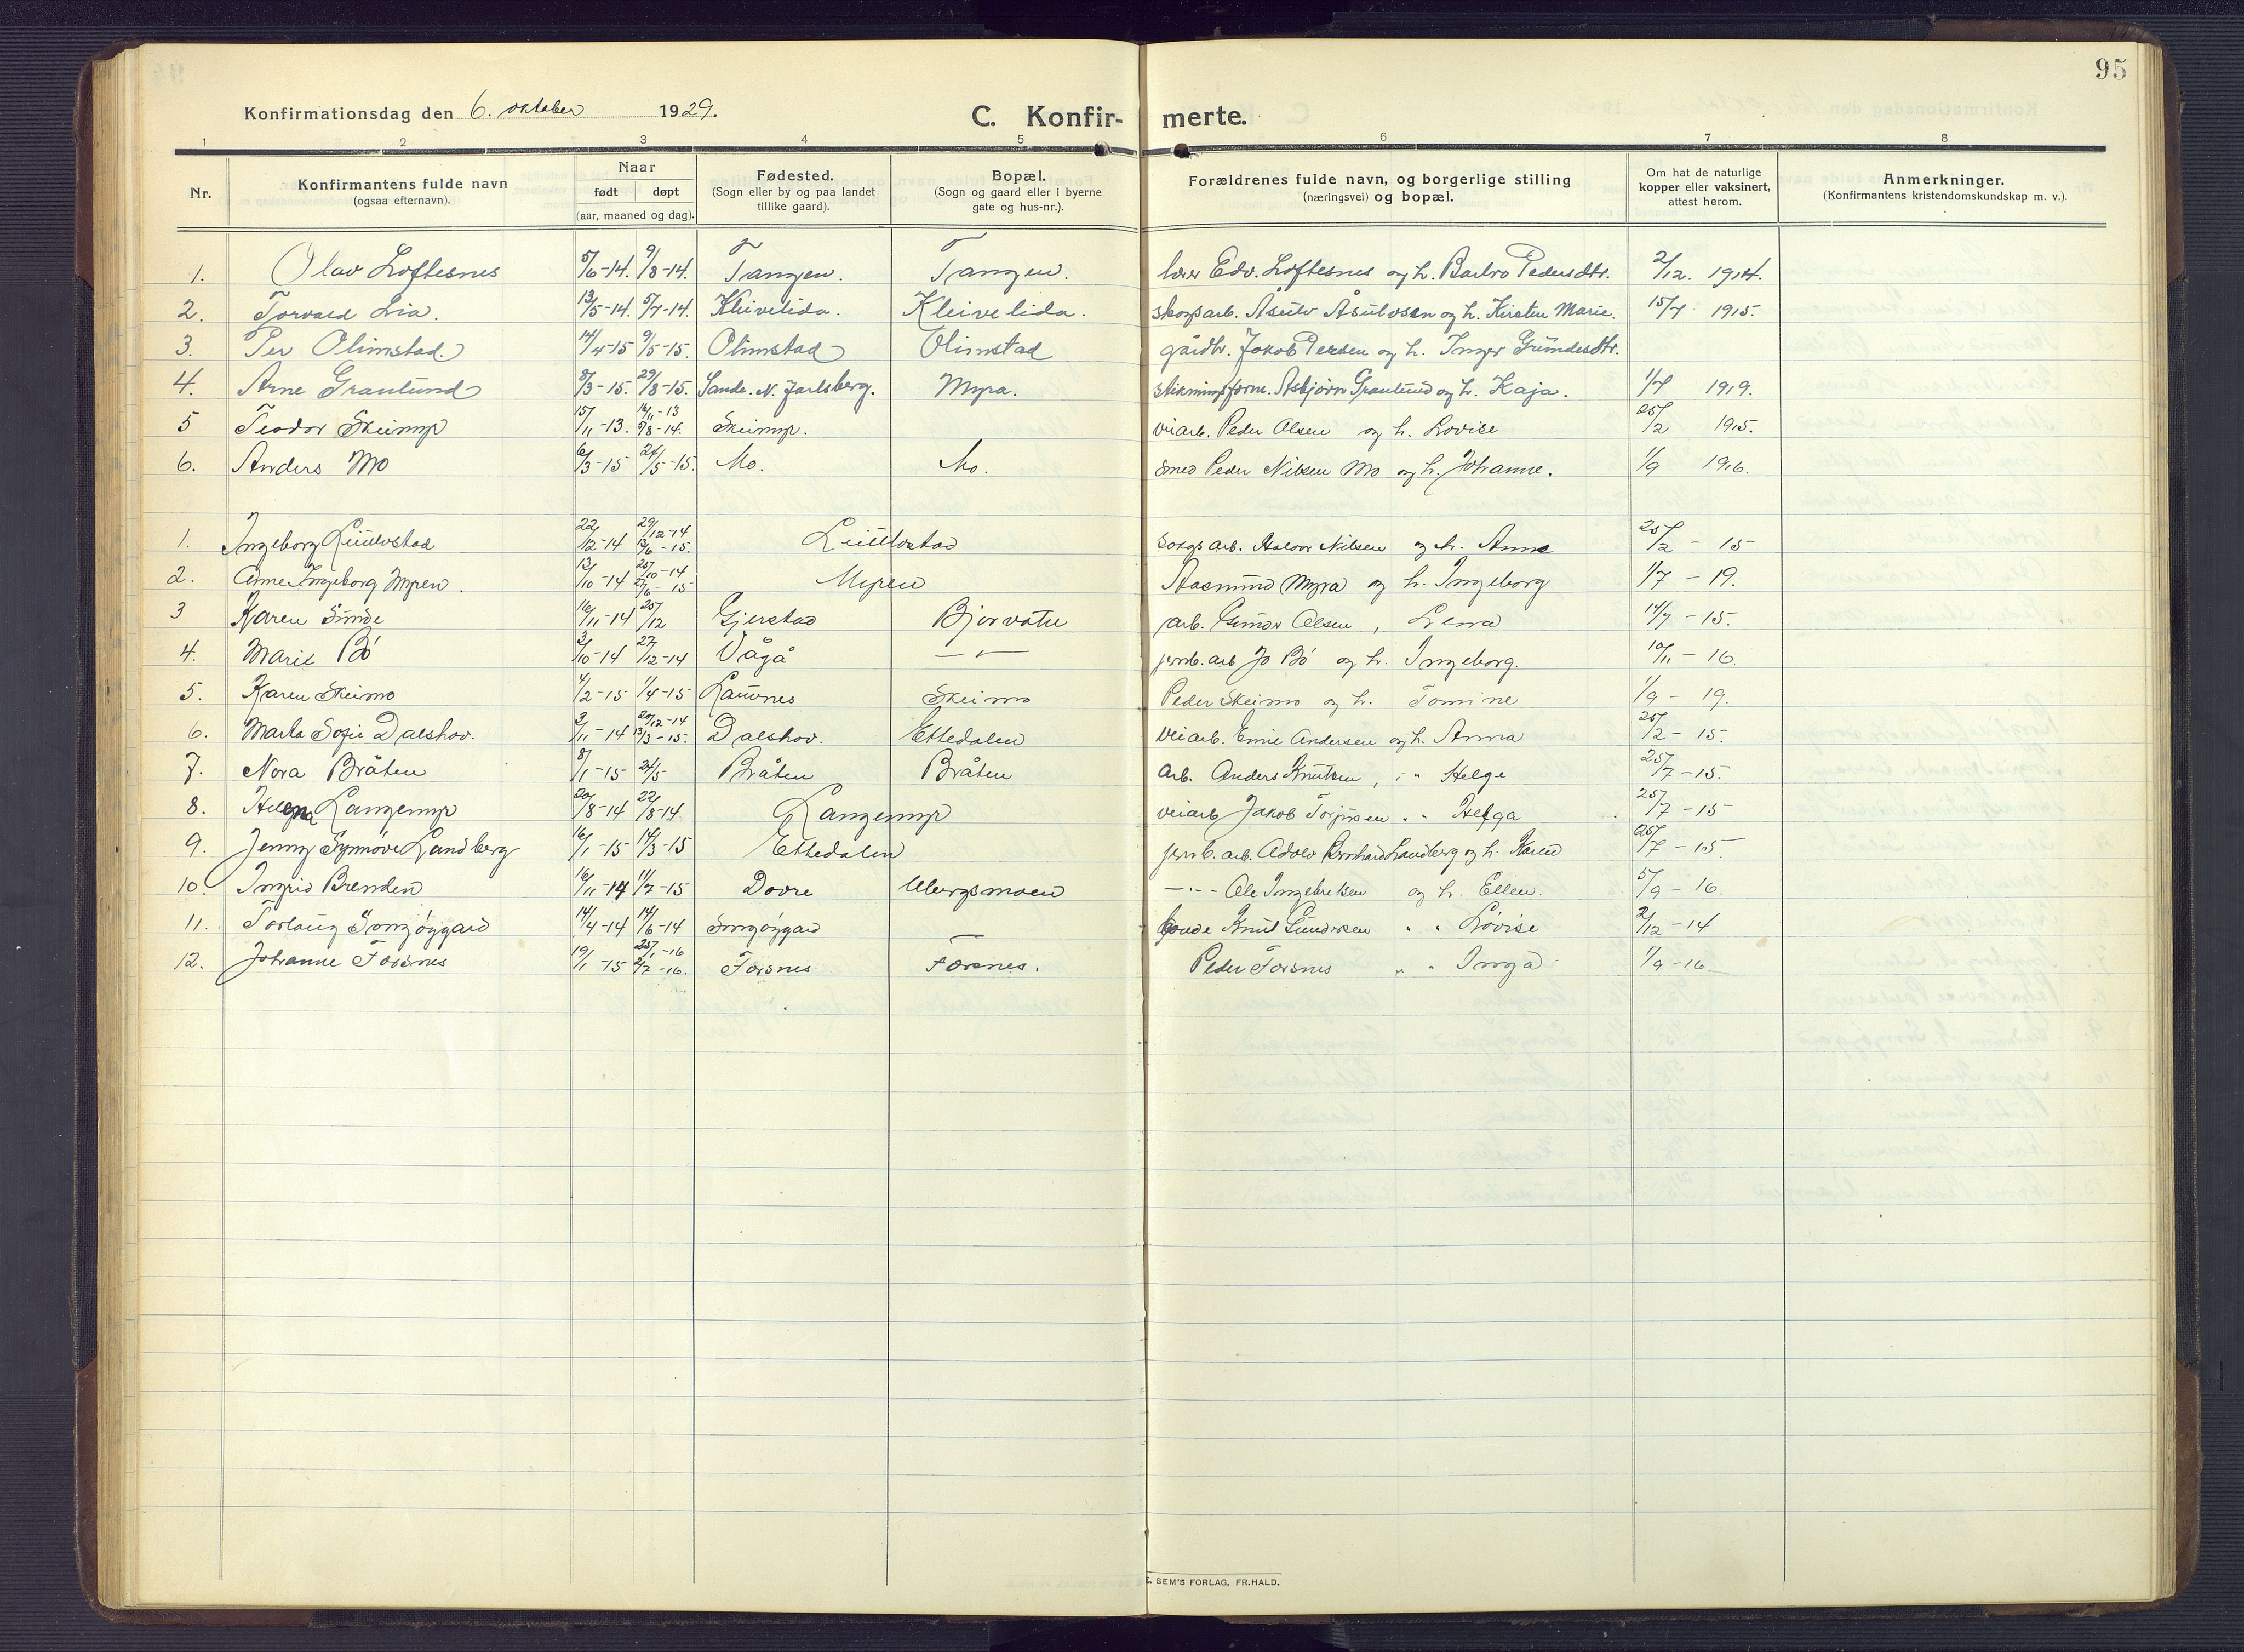 95
Konfirmationsdag den 6. oktober 1929.
C. Konfir- merte.
1 2 3 4 5 6 7 8
Nr.
Konfirmantens fulde navn
(ogsaa efternavn).
Naar
født døpt
(aar, maaned og dag).
Fødested.
(Sogn eller by og paa landet
tillike gaard).
Bopæl.
(Sogn og gaard eller i byerne
gate og hus-nr.).
Forældrenes fulde navn, og borgerlige stilling
(næringsvei) og bopæl.
Om hat de naturlige
kopper eller vaksinert,
attest herom.
Anmerkninger.
(Konfirmantens kristendomskundskap m. v.).
1. Olav Loftesnes 5/6-14. 9/8-14. Tangen. Tangen. lærer Edv. Loftesnes og h. Barbro Pedersdtr. 2/12. 1914.
2. Torvald Lia. 13/5-14. 5/7-14. Kleivelida. Kleivelida. skogsarb. Åsulv Åsulvsen og h. Kirsten Marie. 15/7 1915.
3. Per Olimstad. 14/4-15 9/5-15. Olimstad Olimstad gårdbr. Jakob Persen og h. Inger Gundesdtr.
4. Arne Granlund 8/3-15. 29/8-15. Sande. N. Jarlsberg. Myra. stikningsform. Asbjørn Granlund og h. Kaja. 1/7 1919.
5 Teodor Skeimyr 15/11-13. 16/11-13 9/8-14. Skeimyr. veiarb. Peder Olsen og h. Lovise 25/2 1915.
6. Anders Mo 6/3-15 24/5-15. Mo. Mo. smed Peder Nilsen Mo og h. Johanne. 1/9 1916.
1. Ingeborg Lindvstad 22/12-14 29/12-14 13/6-15. skogsarb. Halvor Nilsen og h. Anne 25/2 - 15
2. Anne Ingeborg Myren. 13/10-14 25/10-14 27/6-15 Myren Aasmund Myra og h. Ingeborg 1/7 - 19.
3 Karen Sunde 16/11-14 25/12 Gjerstad Bjorvatn arb. Gunvor Olsen, Lena 14/7 - 15.
4. Marie Bö 3/10-14 27/12-14 Vågå — — jernb.arb Jo Bö og h. Ingeborg. 10/11 - 16.
5. Karen Skeimo 4/2-15 1/4-15 Lauvnes Skeimo Peder Skeimo og h. Tomine 1/9 - 19.
6. Marta Sofie Dalskov. 3/11-14 20/12-14 13/3-15. Dalskov. Ettedalen veiarb. Emil Andersen og h. Anna 25/2 - 15.
7. Nora Bråten 8/1-15 24/5 Bråten Bråten arb. Anders Knutsen, " Helge 25/7 - 15.
8. Helga Langemyr 20/8-14 22/8-14 Langemyr veiarb Jakob Torjusen " " Helga 25/7 - 15
9. Jenny Synnöve Landberg 16/1-15 14/3-15 Ettedalen jernb. arb. Adolv Bernhard Landberg og h. Karen 25/7 - 15
10. Ingrid Brenden 16/11-14 11/7-15 Dovre Ubergsmoen — " — Ole Ingebretsen og h. Ellen. 5/9 - 16.
11. Torlaug Songöygard 14/4-14 14/6-14 Songöygard — bonde Knut Gundersen " " Lovise 2/12 - 14
12. Johanne Forsnes 19/1-15 25/1-16 2/7-16. Forsnes Forsnes. Peder Forsnes " " Inga 1/9 - 16
E. SEM'S FORLAG, FR.HALD.